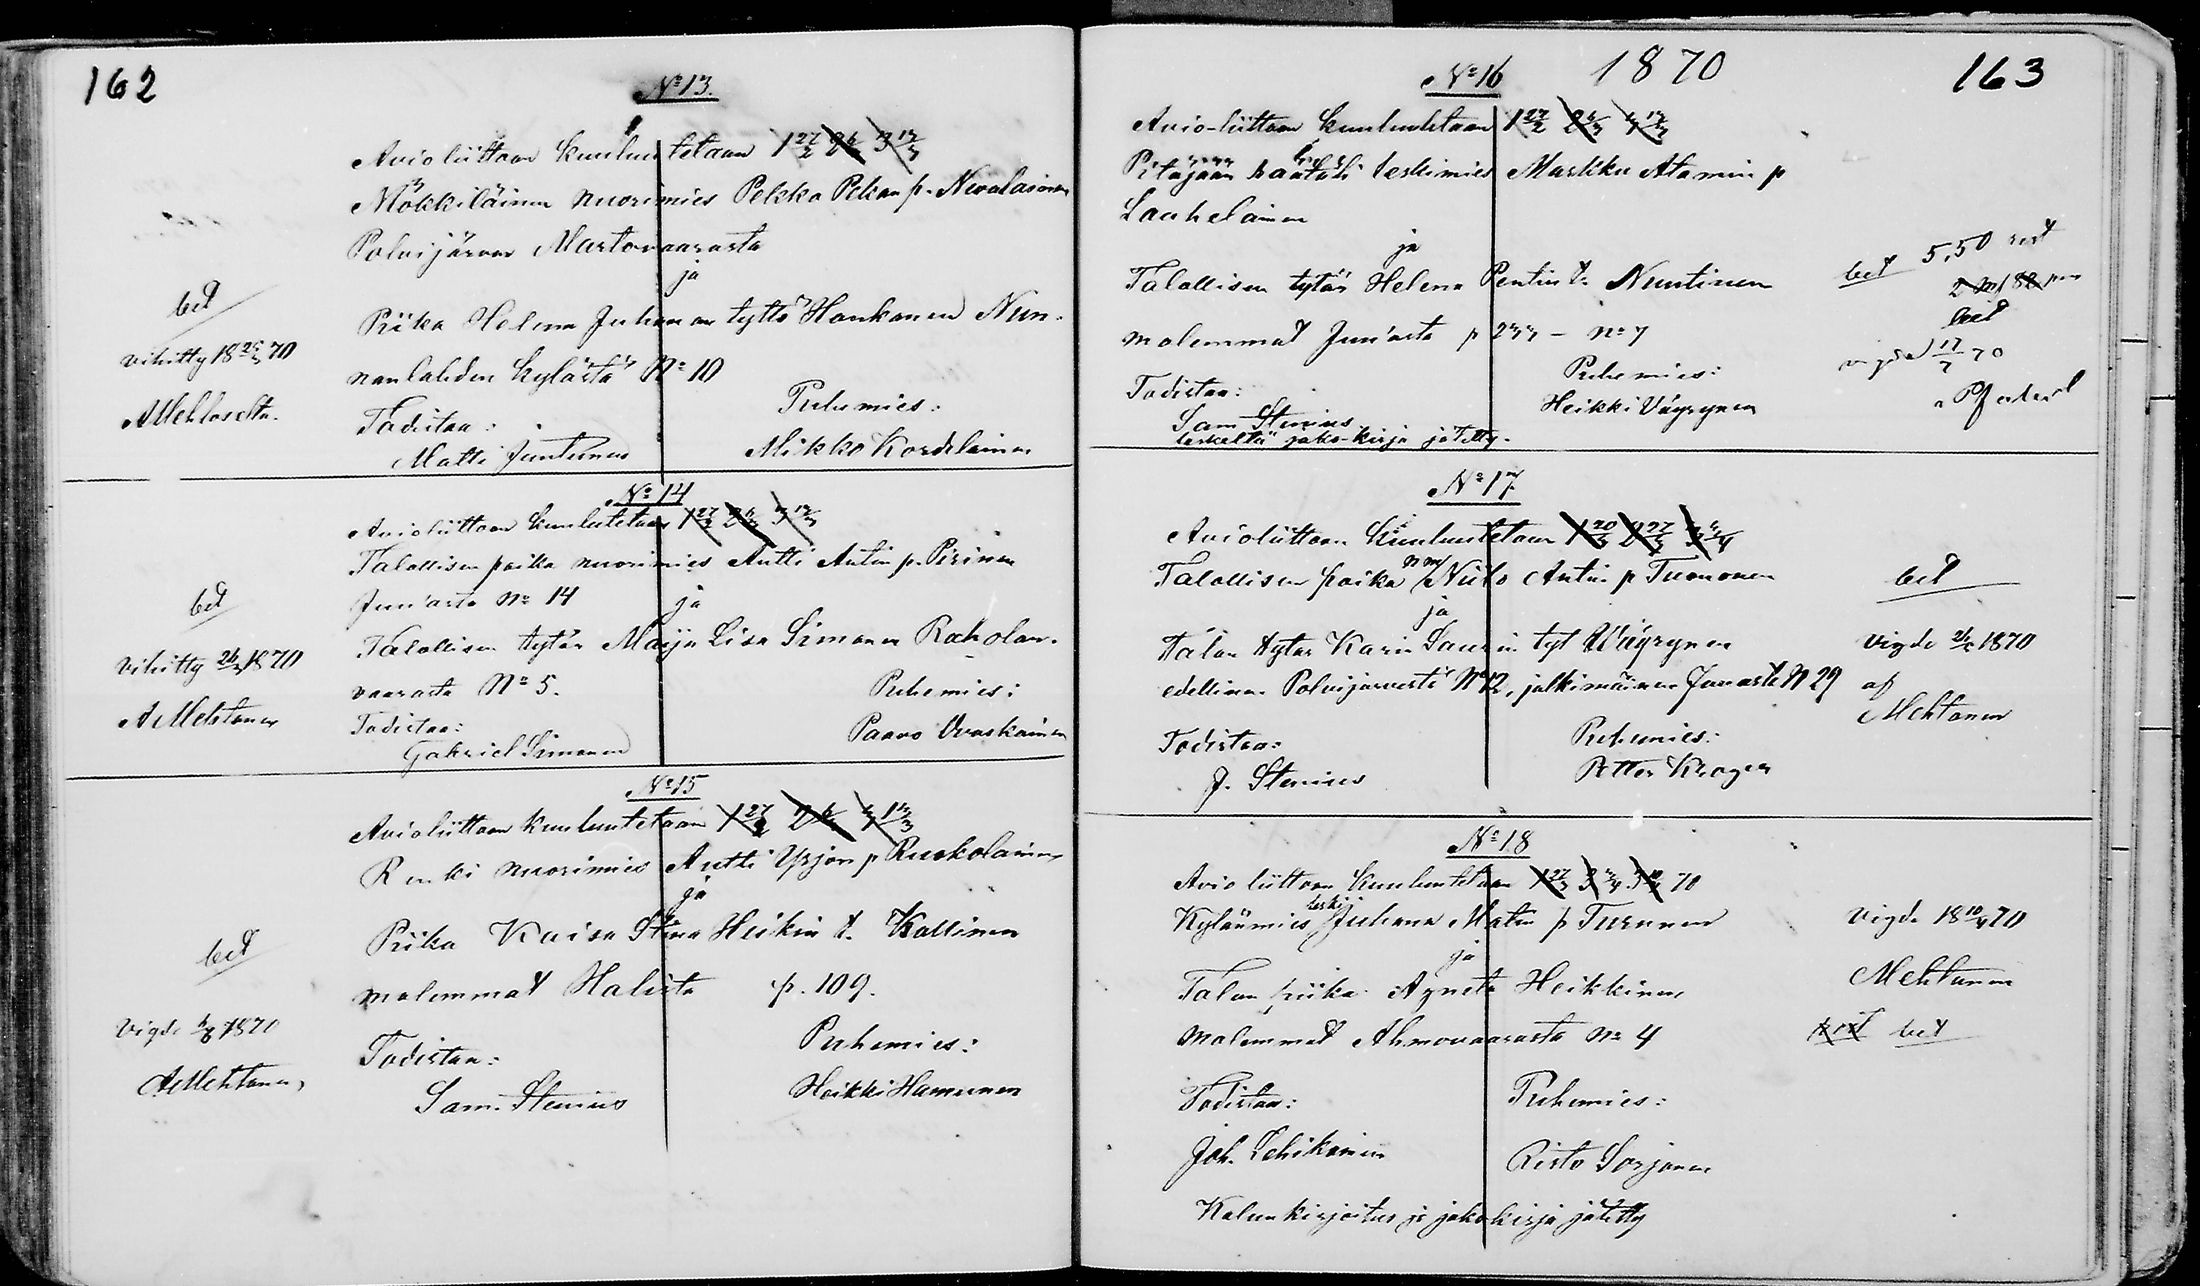 162
No 13.
Avioliittoon kuulutetaan 1 27/2 2 6/3 3 13/3
Mökkiläinen nuorimies Pekka Pekan p. Nevalainen
Polvijärven Martonvaarasta
ja
Piika Helena Juhanan tyttö Honkanen Nun-
nanlahden kylästä No 10
Todistaa:
Matti Juntunen
Puhemies:
Mikko Kordelainen
bet
vihitty 18 26/3 70
No 14
Avioliittoon kuulutetaan 1 27/2 2 6/3 3 13/3
Talollisen poika nuorimies Antti Antin p. Pirinen
Juu'asta No 14
ja
Talollisen tytär Maija Lisa Simonen Raholan-
vaarasta No 5.
Todistaa:
Gabriel Simonen
Puhemies:
Paavo Ovaskainen
bet
vihitty 26/3 1870
A Mehtonen
No 15
Avioliittoon kuulutetaan 1 27/2 2 6/3 3 13/3
Renki nuorimies Antti Yrjön p Ruokolainen
ja
Piika Kaisa Stina Heikin t. Kallinen
molemmat Halista p. 109.
Todistaa:
Sam. Stenius
Puhemies:
Heikki Hamunen
bet
Vigde 1870
A Mehtonen
1870
163
No 16
Avio-liittoon kuulutetaan 1 27/2 2 6/3 3 13/3
Pitäjään räätäli leskimies Markku Atamin p
Lauhelainen
ja
Talollisen tytär Helena Pentin t. Nuutinen
molemmat Juu'asta p 233 - No 7
Todistaa:
Sam Stenius
leskeltä jako-kirja jätetty.
Puhemies:
Heikki Väyrynen
bet 5,50 rest
bet
vigda 17/7 70
No 17
Avioliittoon kuulutetaan 1 20/3 2 27/3 3 3/4
Talollisen poika nm Niilo Antin p Turunen
ja
Talon tytär Karin Laurin tyt Väyrynen
edellinen Polvijärvestä No 12, jälkimäinen Juuasta No 29
Todistaa:
J. Stenius
Puhemies:
Petter Kroger
bet
Vigde 26/6 1870
af
Mehtonen
No 18
Avioliittoon kuulutetaan 1 27/3 2 3/4 3 10/4 70
Kyläänmies leski Juhana Matin p Turunen
ja
Talon piika Agneta Heikkinen
molemmat Ahmovaarasta No 4
Todistaa:
Joh. Lehikoinen
Puhemies:
Risto Sorjonen
Kalunkirjoitus ja jakokirja jätetty
Vigde 18 10/4 70
Mehtonen
rest bet